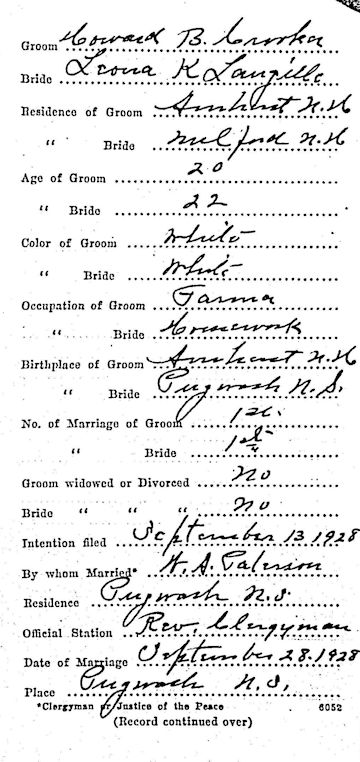 Groom Howard B. Crooker
Bride Leona K Langille
Residence of Groom Amherst N.H
" Bride Milford N.H
Age of Groom 20
" Bride 22
Color of Groom White
" Bride White
Occupation of Groom Farmer
" Bride Housework
Birthplace of Groom Amherst N.H
" Bride Pugwash N.S.
No. of Marriage of Groom 1st.
" Bride 1st
Groom widowed or Divorced No
Bride " " " No
Intention filed September 13 1928
By whom Married* W. A. Paterson
Residence Pugwash N.S
Official Station Rev. Clergyman
Date of Marriage September 28. 1928
Place Pugwash N.S.
*Clergyman or Justice of the Peace 6052
(Record continued over)